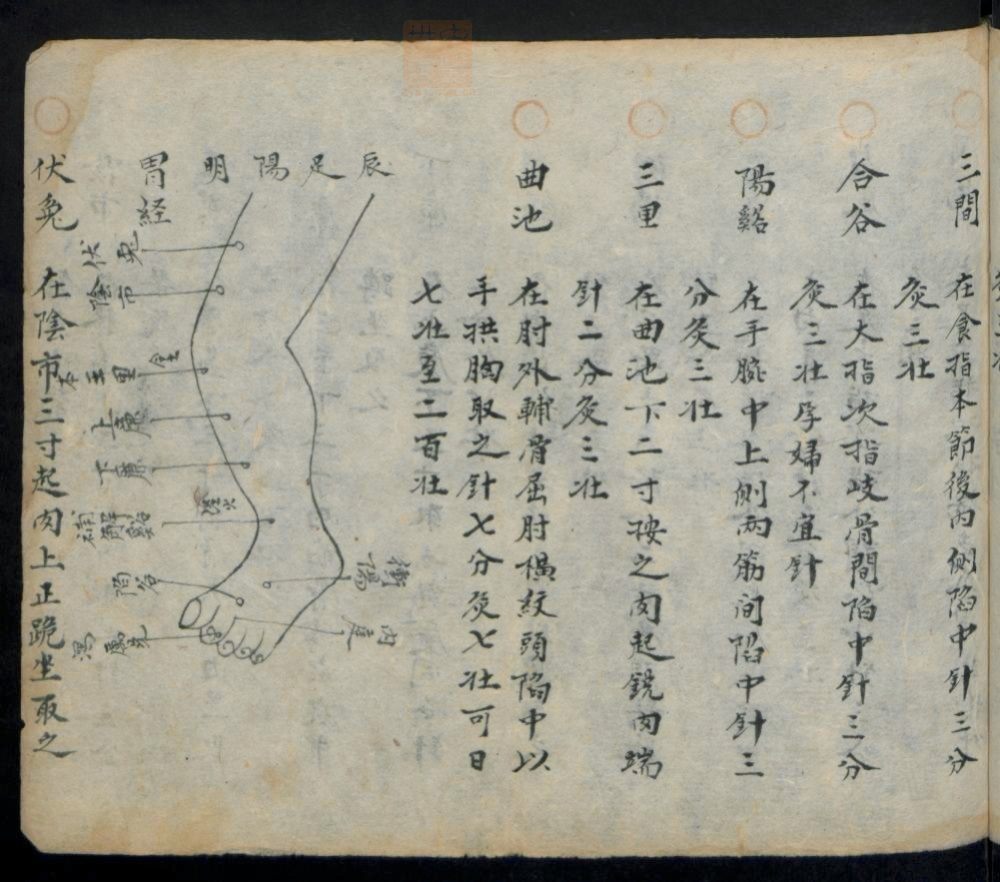 三間 在食指本節後内侧陷中針三分
灸三壮
合谷 在大指次指岐骨間陷中針三分
灸三壮孕婦不宜針
陽谿 在手腕中上侧两筋间陷中針三
分灸三壮
三里 在曲池下二寸按之肉起鋭肉端
針二分灸三壮
曲池 在肘外輔骨屈肘横紋頭陷中以
手拱胸取之針七分灸七壮可日
七壮至二百壮
辰足陽明
胃経
伏兎
陰市
三里
上廉
下廉
解谿
衝陽
陷谷
内庭
厲兌
伏兎 在陰市三寸起肉上正跪坐取之